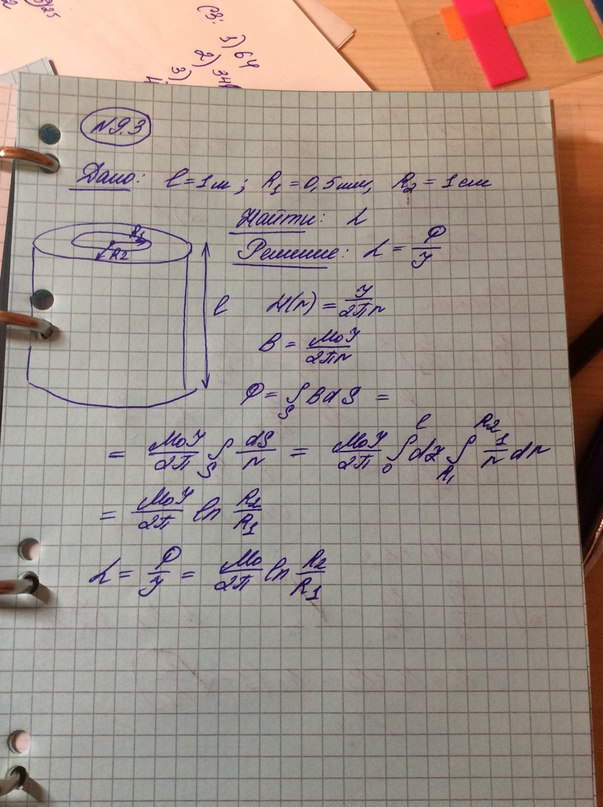 СЗ: 1) 64
2)
3)
№9.3
Дано: l = 1м; R₁ = 0,5мм, R₂ = 1см
Найти: L
Решение: L = Ф/I
R₁
R₂
l
H(r) = I/2πr
B = μ₀I/2πr
Ф = ∫_S BdS =
= μ₀I/2π ∫_S dS/r = μ₀I/2π ∫₀^l dz ∫_{R₁}^{R₂} 1/r dr
= μ₀I/2π ln R₂/R₁
L = Ф/I = μ₀/2π ln R₂/R₁